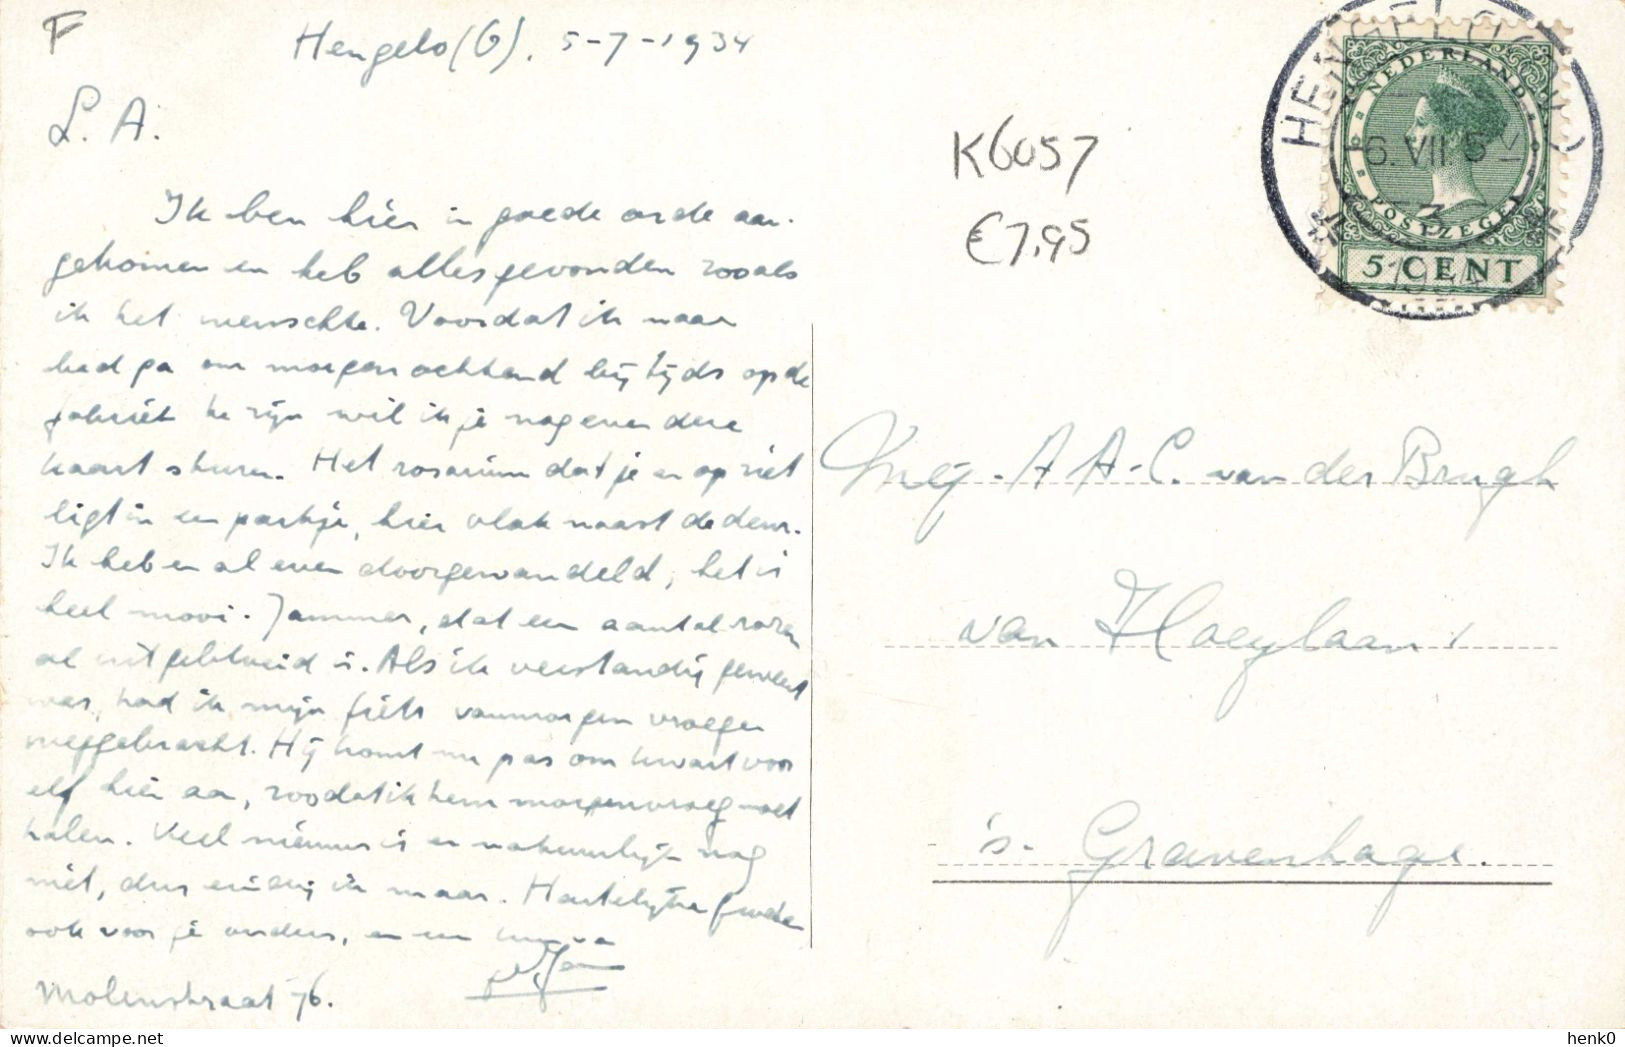 F
Hengelo (G). 5-7-1934
L. A.
Ik ben hier in goede orde aan-
gekomen en heb alles gevonden zooals
ik het wenschte. Voordat ik naar
bed ga om morgen ochtend bij tijds op de
fabriek te zijn wil ik je nog even deze
kaart sturen. Het rosarium dat je er op ziet
ligt in een parkje, hier vlak naast de deur.
Ik heb er al even doorgewandeld, het is
heel mooi. Jammer, dat een aantal rozen
al uitgebloeid is. Als ik verstandig geweest
was, had ik mijn fiets vanmorgen vroeger
weggebracht. Hij komt nu pas om kwart voor
elf hier aan, zoodat ik hem morgenvroeg moet
halen. Veel nieuws is er natuurlijk nog
niet, dus eindig ik maar. Hartelijke groeten
ook voor je ouders, en een van
Jan
Molenstraat 76.
K6057
€7,95
HENGELO
6.VII
3
1934
NEDERLAND
POSTZEGEL
5 CENT
Mej. A A. C. van der Brugh
van Hoeylaan 1
's- Gravenhage.
henk0